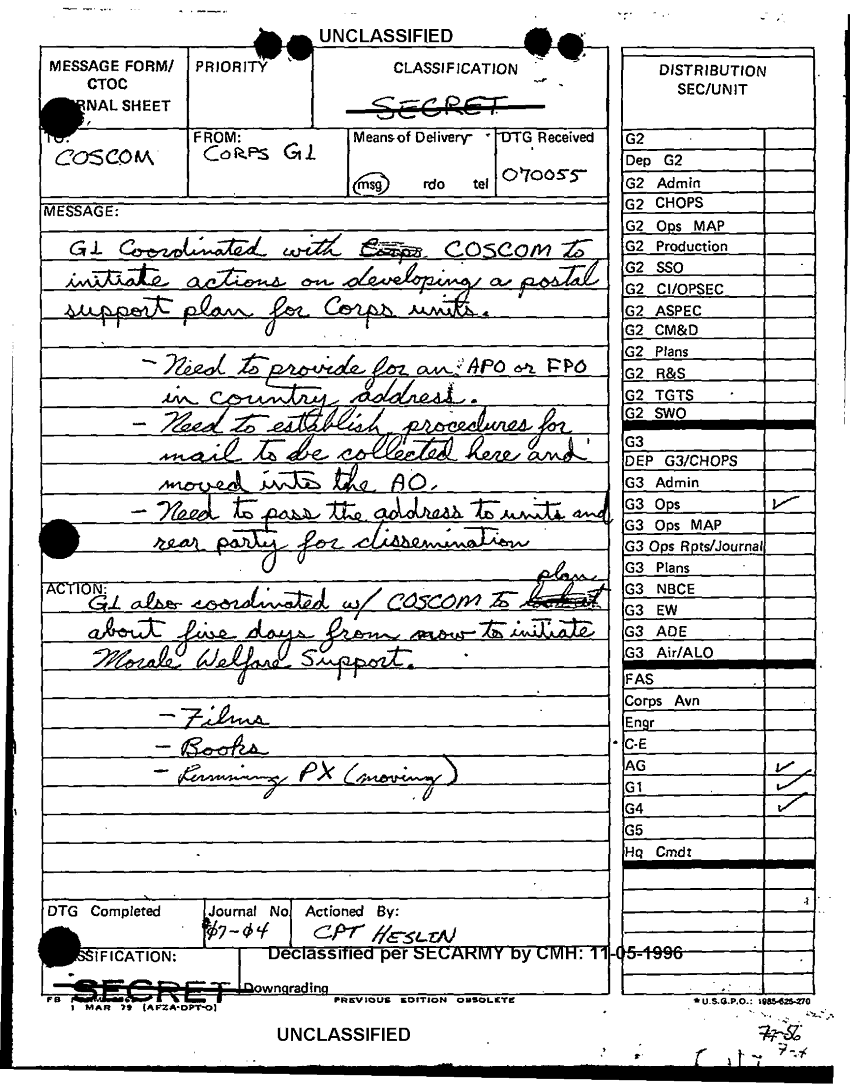 UNCLASSIFIED
MESSAGE FORM/
CTOC
RNAL SHEET
PRIORITY
CLASSIFICATION
SECRET
TO:
COSCOM
FROM:
CORPS G1
Means of Delivery
msg rdo tel
DTG Received
070055
MESSAGE:
G1 Coordinated with Corps COSCOM to
initiate actions on developing a postal
support plan for Corps units.
- Need to provide for an APO or FPO
in country address.
- Need to establish procedures for
mail to be collected here and
moved into the AO.
- Need to pass the address to units and
rear party for dissemination
ACTION:
plan
G1 also coordinated w/ COSCOM to
about five days from now to initiate
Morale Welfare Support.
- Films
- Books
- PX (moving)
DTG Completed
Journal No
07-04
Actioned By:
CPT HESLIN
SSIFICATION:
SECRET
Declassified per SECARMY by CMH: 11-05-1996
Downgrading
FB
1 MAR 79 (AFZA-DPT-O)
PREVIOUS EDITION OBSOLETE
UNCLASSIFIED
DISTRIBUTION
SEC/UNIT
G2
Dep G2
G2 Admin
G2 CHOPS
G2 Ops MAP
G2 Production
G2 SSO
G2 CI/OPSEC
G2 ASPEC
G2 CM&D
G2 Plans
G2 R&S
G2 TGTS
G2 SWO
G3
DEP G3/CHOPS
G3 Admin
G3 Ops ✓
G3 Ops MAP
G3 Ops Rpts/Journal
G3 Plans
G3 NBCE
G3 EW
G3 ADE
G3 Air/ALO
FAS
Corps Avn
Engr
C-E
AG ✓
G1 ✓
G4 ✓
G5
Hq Cmdt
*U.S.G.P.O.: 1985-625-270